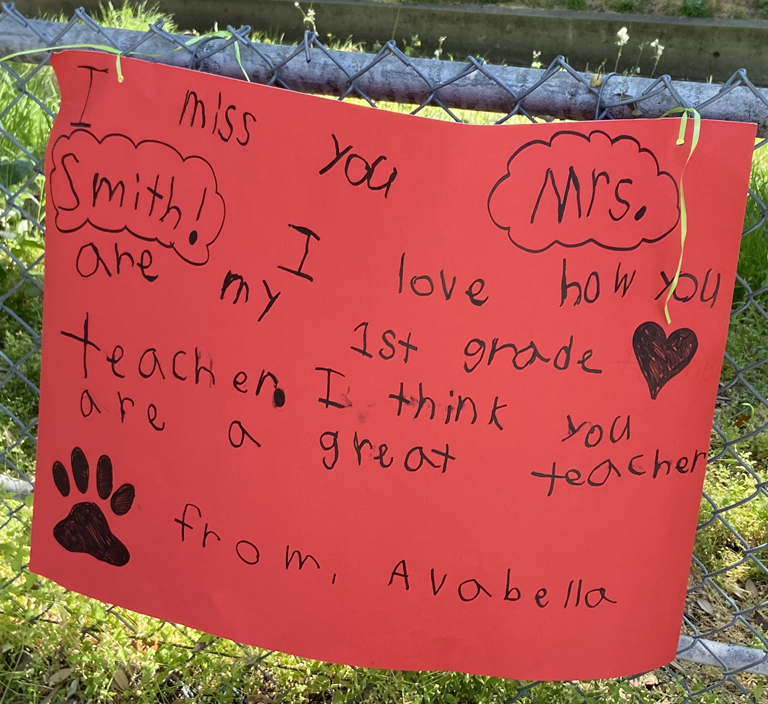 I miss you Mrs.
Smith! I love how you
are my 1st grade
teacher. I think you
are a great teacher
from, Avabella